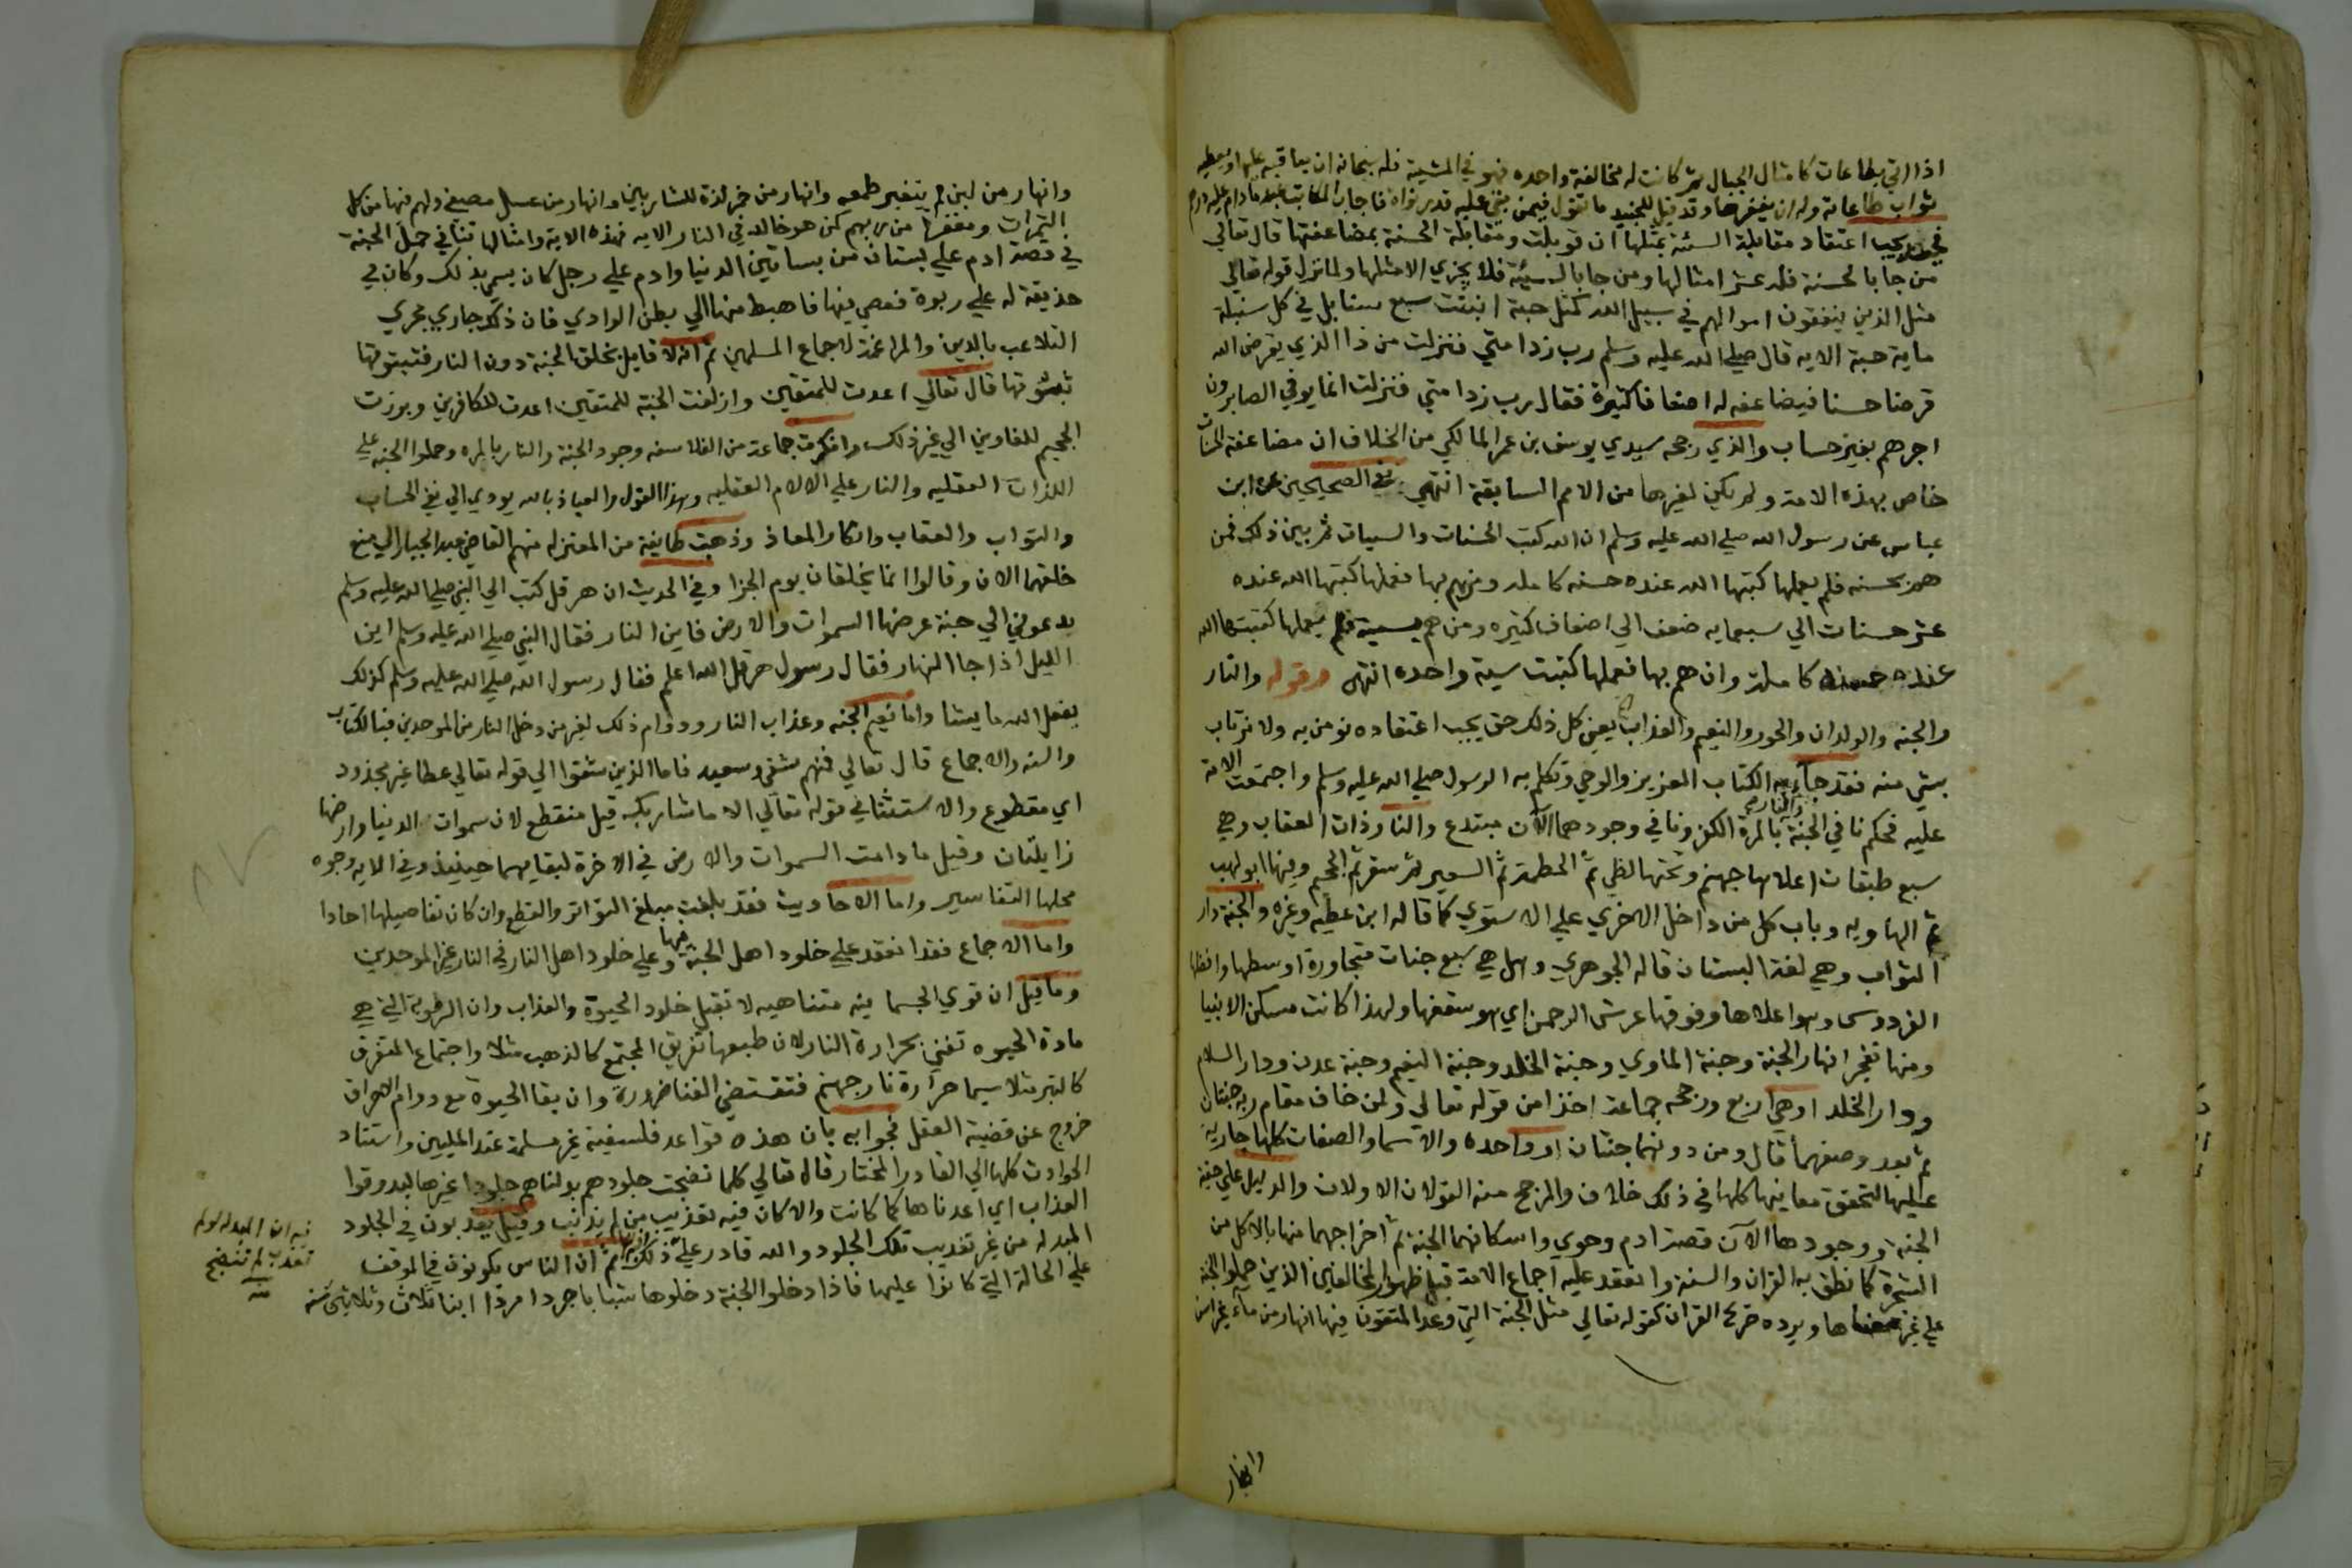 اذا اتي بطاعات كامثال الجبال ثم كانت له مخالفة واحده فهو في المشية فله سبحانه ان يعاقبه عليها ويعطيه
ثواب طاعاته وله ان يغفرها وقد قيل للجنيد ما تقول فيمن بقي عليه قدر نواة فاجاب المكاتب عبد ما دام عليه درهم
يجب اعتقاد مقابلة السئة بمثلها ان قوبلت ومقابلة الحسنة بمضاعفتها قال تعالي
من جا بالحسنة فله عشر امثالها ومن جا بالسيئة فلا يجزي الا مثلها ولما نزل قوله تعالي
مثل الذين ينفقون اموالهم في سبيل الله كمثل حبة انبتت سبع سنابل في كل سنبلة
ماية حبة الايه قال صلي الله عليه وسلم رب زد امتي فنزلت من ذا الذي يقرض الله
قرضا حسنا فيضاعفه له اضعافا كثيرة فقال رب زد امتي فنزلت انما يوفي الصابرون
اجرهم بغير حساب والذي رجحه سيدي يوسف بن عمر المالكي من الخلاف ان مضاعفة الحسنات
خاص بهذه الامة ولم يكن لغيرها من الامم السابقة انتهي في الصحيحين عن ابن
عباس عن رسول الله صلي الله عليه وسلم ان الله كتب الحسنات والسيات ثم بين ذلك فمن
هم بحسنه فلم يعملها كتبها الله عنده حسنه كامله ومن هم بها فعملها كتبها الله عنده
عشر حسنات الي سبعمايه ضعف الي اضعاف كثيره ومن هم بسية فلم يعملها كتبها الله
عنده حسنة كاملة وان هم بها فعملها كتبت سية واحده انتهي وقوله والنار
والجنه والولدان والحور والنعيم والعذاب يعني كل ذلك حق يجب اعتقاده نومن به ولا نرتاب
بشي منه فقد جاء به الكتاب العزيز والوحي وتكلم به الرسول صلي الله عليه وسلم واجتمعت الامة
عليه فحكم نافي الجنة والنار بالمرة الكفر ونافي وجودهما الآن مبتدع والنار ذات العقاب وهي
سبع طبقات اعلاها جهنم وتحتها لظي ثم الحطمة ثم السعير ثم سقر ثم الجحيم وفيها ابو لهب
ثم الهاويه وباب كل من داخل الاخري علي الاستوي كما قاله ابن عطيه وغيره والجنة دار
الثواب وهي لغة البستان قاله الجوهري وهل هي سبع جنات متجاورة اوسطها وافضلها
الفردوس وهو اعلاها وفوقها عرش الرحمن اي هو سقفها ولهذا كانت مسكن الانبيا
ومنها تفجر انهار الجنة وجنة الماوي وجنة الخلد وجنة النعيم وجنة عدن ودار السلام
ودار الخلد او هي اربع ورجحه جماعة اخذا من قوله تعالي ولمن خاف مقام ربه جنتان
ثم بعد وصفهما قال ومن دونهما جنتان او واحده والاسما والصفات كلها جارية
عليها لتحقق معانيها كلها في ذلك خلاف والمرجح منه القولان الاولان والدليل علي حقية
الجنة ووجودها الآن قصة ادم وحوي واسكانهما الجنة ثم اخراجهما منها بالاكل من
الشجرة كما نطق به القران والسنة وانعقد عليه اجماع الامة قبل ظهور المخالفين الذين حملوا الجنة
علي غير معناها ويرده صريح القران كقوله تعالي مثل الجنة التي وعد المتقون فيها انهار من ماء غير اسن
وانهار
وانهار من لبن لم يتغير طعمه وانهار من خمر لذة للشاربين وانهار من عسل مصفي ولهم فيها من كل
الثمرات ومغفرة من ربهم كمن هو خالد في النار الايه فهذه الاية وامثالها تنافي حمل الجنة
في قصة ادم علي بستان من بساتين الدنيا وادم علي رجل كان يسمي بذلك وكان في
حذيقة له علي ربوة فعصي فيها فاهبط منها الي بطن الوادي فان ذلك جاري مجري
التلاعب بالدين والمراغمة لاجماع المسلمين ثم انه لا قايل بخلق الجنة دون النار فثبوتها
ثبوتها قال تعالي اعدت للمتقين وازلفت الجنة للمتقين اعدت للكافرين وبرزت
الجحيم للغاوين الي غير ذلك وانكرت جماعة من الفلاسفه وجود الجنة والنار بالمره وحملوا الجنه علي
اللذات العقليه والنار علي الالام العقليه وهذا القول والعياذ بالله يودي الي نفي الحساب
والثواب والعقاب وانكار المعاد وذهبت طايفة من المعتزله منهم القاضي عبد الجبار الي منع
خلقهما الان وقالوا انما يخلقان يوم الجزا وفي الحديث ان هرقل كتب الي النبي صلي الله عليه وسلم
يدعوني الي جنة عرضها السموات والارض فاين النار فقال النبي صلي الله عليه وسلم اين
الليل اذا جا النهار فقال رسول هرقل الله اعلم فقال رسول الله صلي الله عليه وسلم كذلك
يفعل الله ما يشا واما نعيم الجنه وعذاب النار ودوام ذلك لغير من دخل النار من الموحدين فبالكتاب
والسنه والاجماع قال تعالي فمنهم شقي وسعيد فاما الذين شقوا الي قوله تعالي عطا غير مجذود
اي مقطوع والاستثنا في قوله تعالي الا ما شا ربك قيل منقطع لان سموات الدنيا وارضها
زايلتان وقيل ما دامت السموات والارض في الاخرة لبقايهما حينيذ وفي الايه وجوه
محلها التفاسير واما الاحاديث فقد بلغت مبلغ التواتر والقطع وان كان تفاصيلها احادا
واما الاجماع فقد انعقد علي خلود اهل الجنة فيها وعلي خلود اهل النار في النار غير الموحدين
وما قيل ان قوي الجسمانيه متناهيه لا تقبل خلود الحيوة والعذاب وان الرطوبة التي هي
مادة الحيوه تفني بحرارة النار لان طبعها تفريق المجتمع كالذهب مثلا واجتماع المتفرق
كالتبر مثلا سيما حرارة نار جهنم فتقتضي الفنا ضرورة وان بقا الحيوة مع دوام الاحراق
خروج عن قضية العقل فجوابه بان هذه قواعد فلسفية غير مسلمة عند المليين واستناد
الحوادث كلها الي القادر المختار قال تعالي كلما نضجت جلودهم بدلناهم جلودا غيرها ليذوقوا
العذاب اي اعدناها كما كانت والا كان فيه تعذيب من لم يذنب وقيل يعذبون في الجلود
المبدله من غير تعذيب تلك الجلود والله قادر علي ذلك ثم ان الناس يكونون في الموقف
علي الحالة التي كانوا عليها فاذا دخلوا الجنة دخلوها شبابا جردا مردا ابنا ثلاث وثلاثين سنه
فيه ان
تعذب لم تنضج